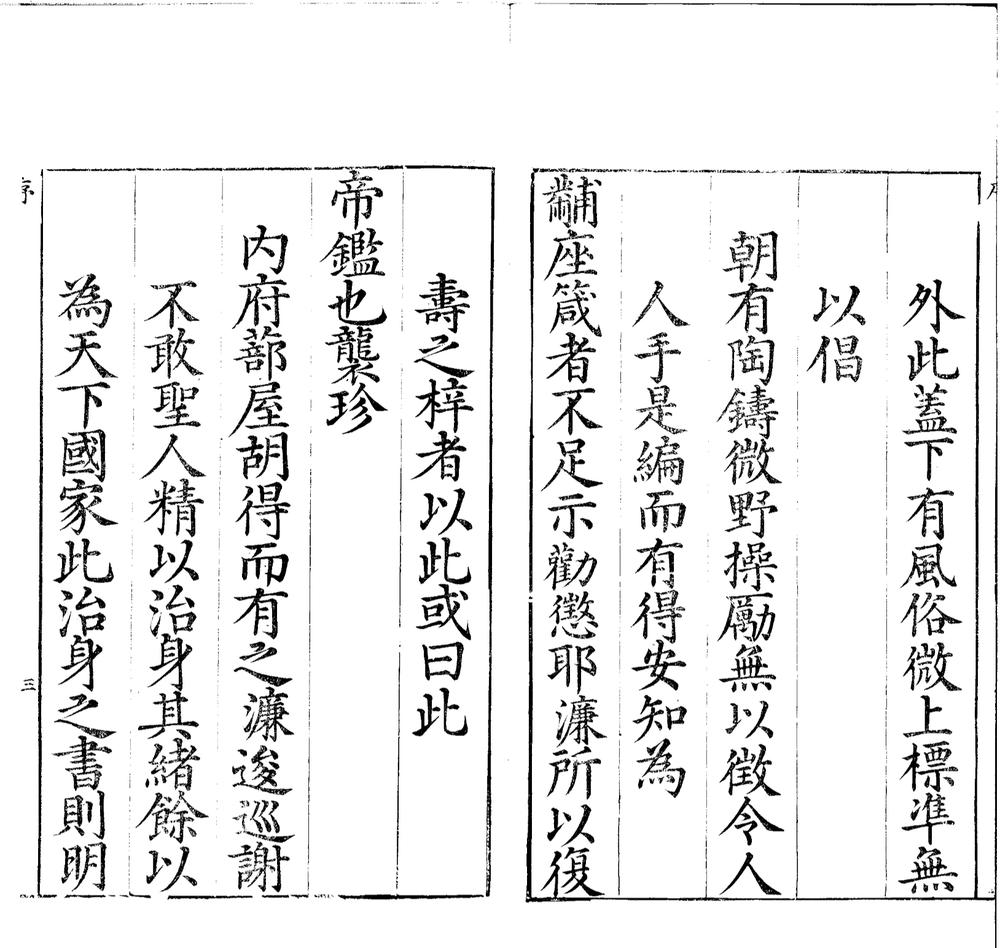 外此蓋下有風俗微上標準無
以倡
朝有陶鑄微野操勵無以徵令人
人手是編而有得安知為
黼座箴者不足示勸懲耶濂所以復
壽之梓者以此或曰此
帝鑑也襲珍
内府蔀屋胡得而有之濂逡巡謝
不敢聖人精以治身其緒餘以
為天下國家此治身之書則明
序
三